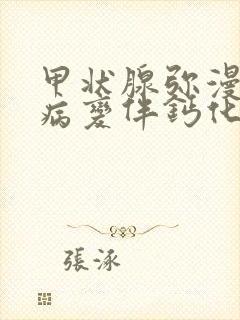 甲状腺弥漫
病變伴鈣化
張泳